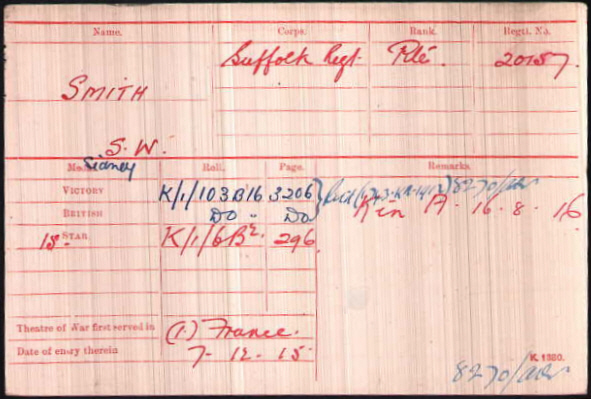 Name. Corps. Rank. Regtl. No.
Suffolk Regt. Pte. 20157
SMITH
S. W.
Sidney
Medal Roll. Page. Remarks
VICTORY K/1/103B16 3206 8270/
BRITISH DO " DO K in A. 16. 8. 16
15 STAR K/1/6B2. 296
Theatre of War first served in (1) France.
Date of entry therein 7. 12. 15
K. 1380.
8270/